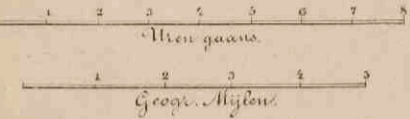 1 2 3 4 5 6 7 8
Uren gaans.
1 2 3 4 5
Geogr. Mijlen.